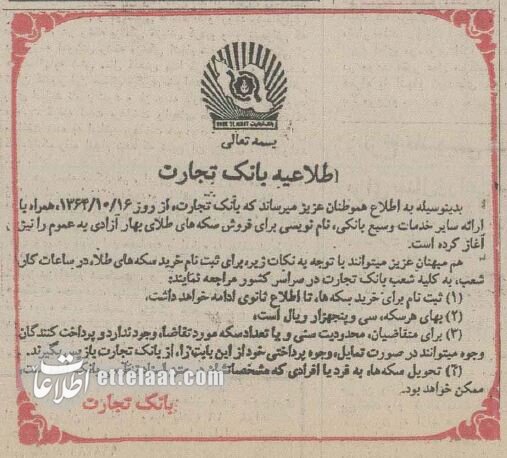 BANK TEJARAT
بسمه تعالی
اطلاعیه بانک تجارت
بدینوسیله به اطلاع هموطنان عزیز میرساند که بانک تجارت، از روز ۱۳۶۴/۱۰/۱۶، همراه با
ارائه سایر خدمات وسیع بانکی، نام نویسی برای فروش سکه های طلای بهار آزادی به عموم را نیز
آغاز کرده است.
هم میهنان عزیز میتوانند با توجه به نکات زیر، برای ثبت نام خرید سکه های طلا، در ساعات کار
شعب، به کلیه شعب بانک تجارت در سراسر کشور مراجعه نمایند:
(۱) ثبت نام برای خرید سکه ها، تا اطلاع ثانوی ادامه خواهد داشت.
(۲) بهای هر سکه، سی و پنجهزار ریال است.
(۳) برای متقاضیان، محدودیت سنی و یا تعداد سکه مورد تقاضا، وجود ندارد و پرداخت کنندگان
وجوه میتوانند در صورت تمایل، وجوه پرداختی خود از این بابت را، از بانک تجارت باز پس بگیرند.
(۴) تحویل سکه ها، به فرد یا افرادی که مشخصاتشان
ممکن خواهد بود.
بانک تجارت
اطلاعات ettelaat.com